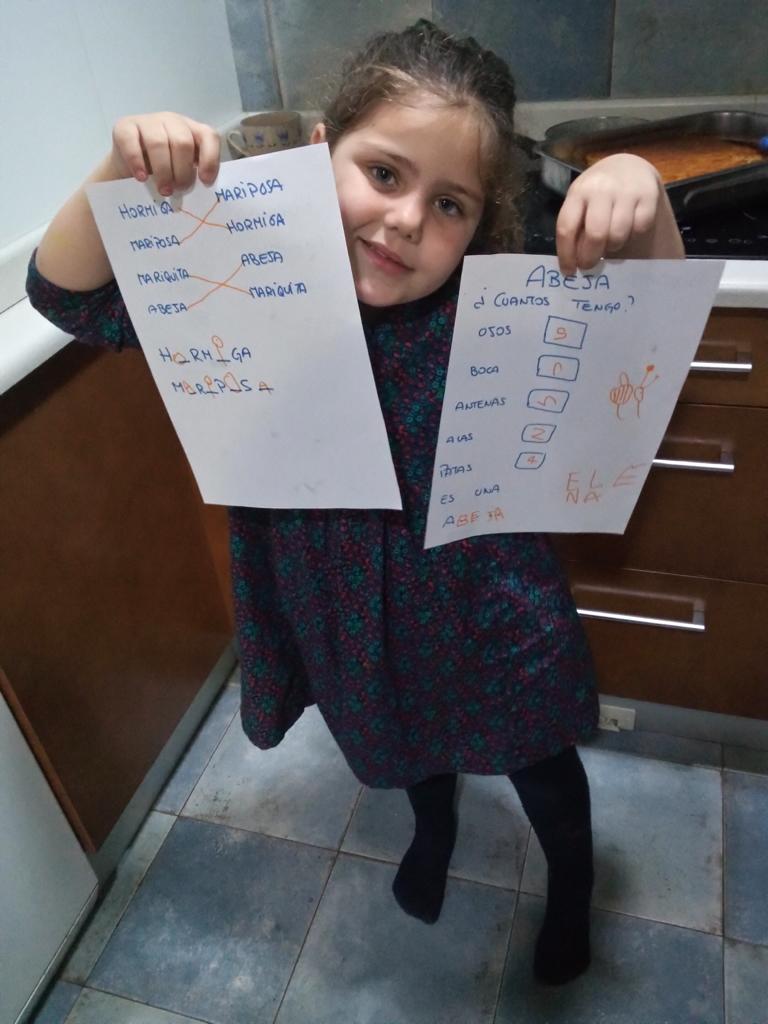 HORMIGA MARIPOSA
MARIPOSA HORMIGA
MARIQUITA ABEJA
ABEJA MARIQUITA
HORMIGA
MARIPOSA
ABEJA
¿CUANTOS TENGO?
OJOS 9
BOCA
ANTENAS 5
ALAS 2
PATAS 4
ES UNA
ABEJA
ELE
NA